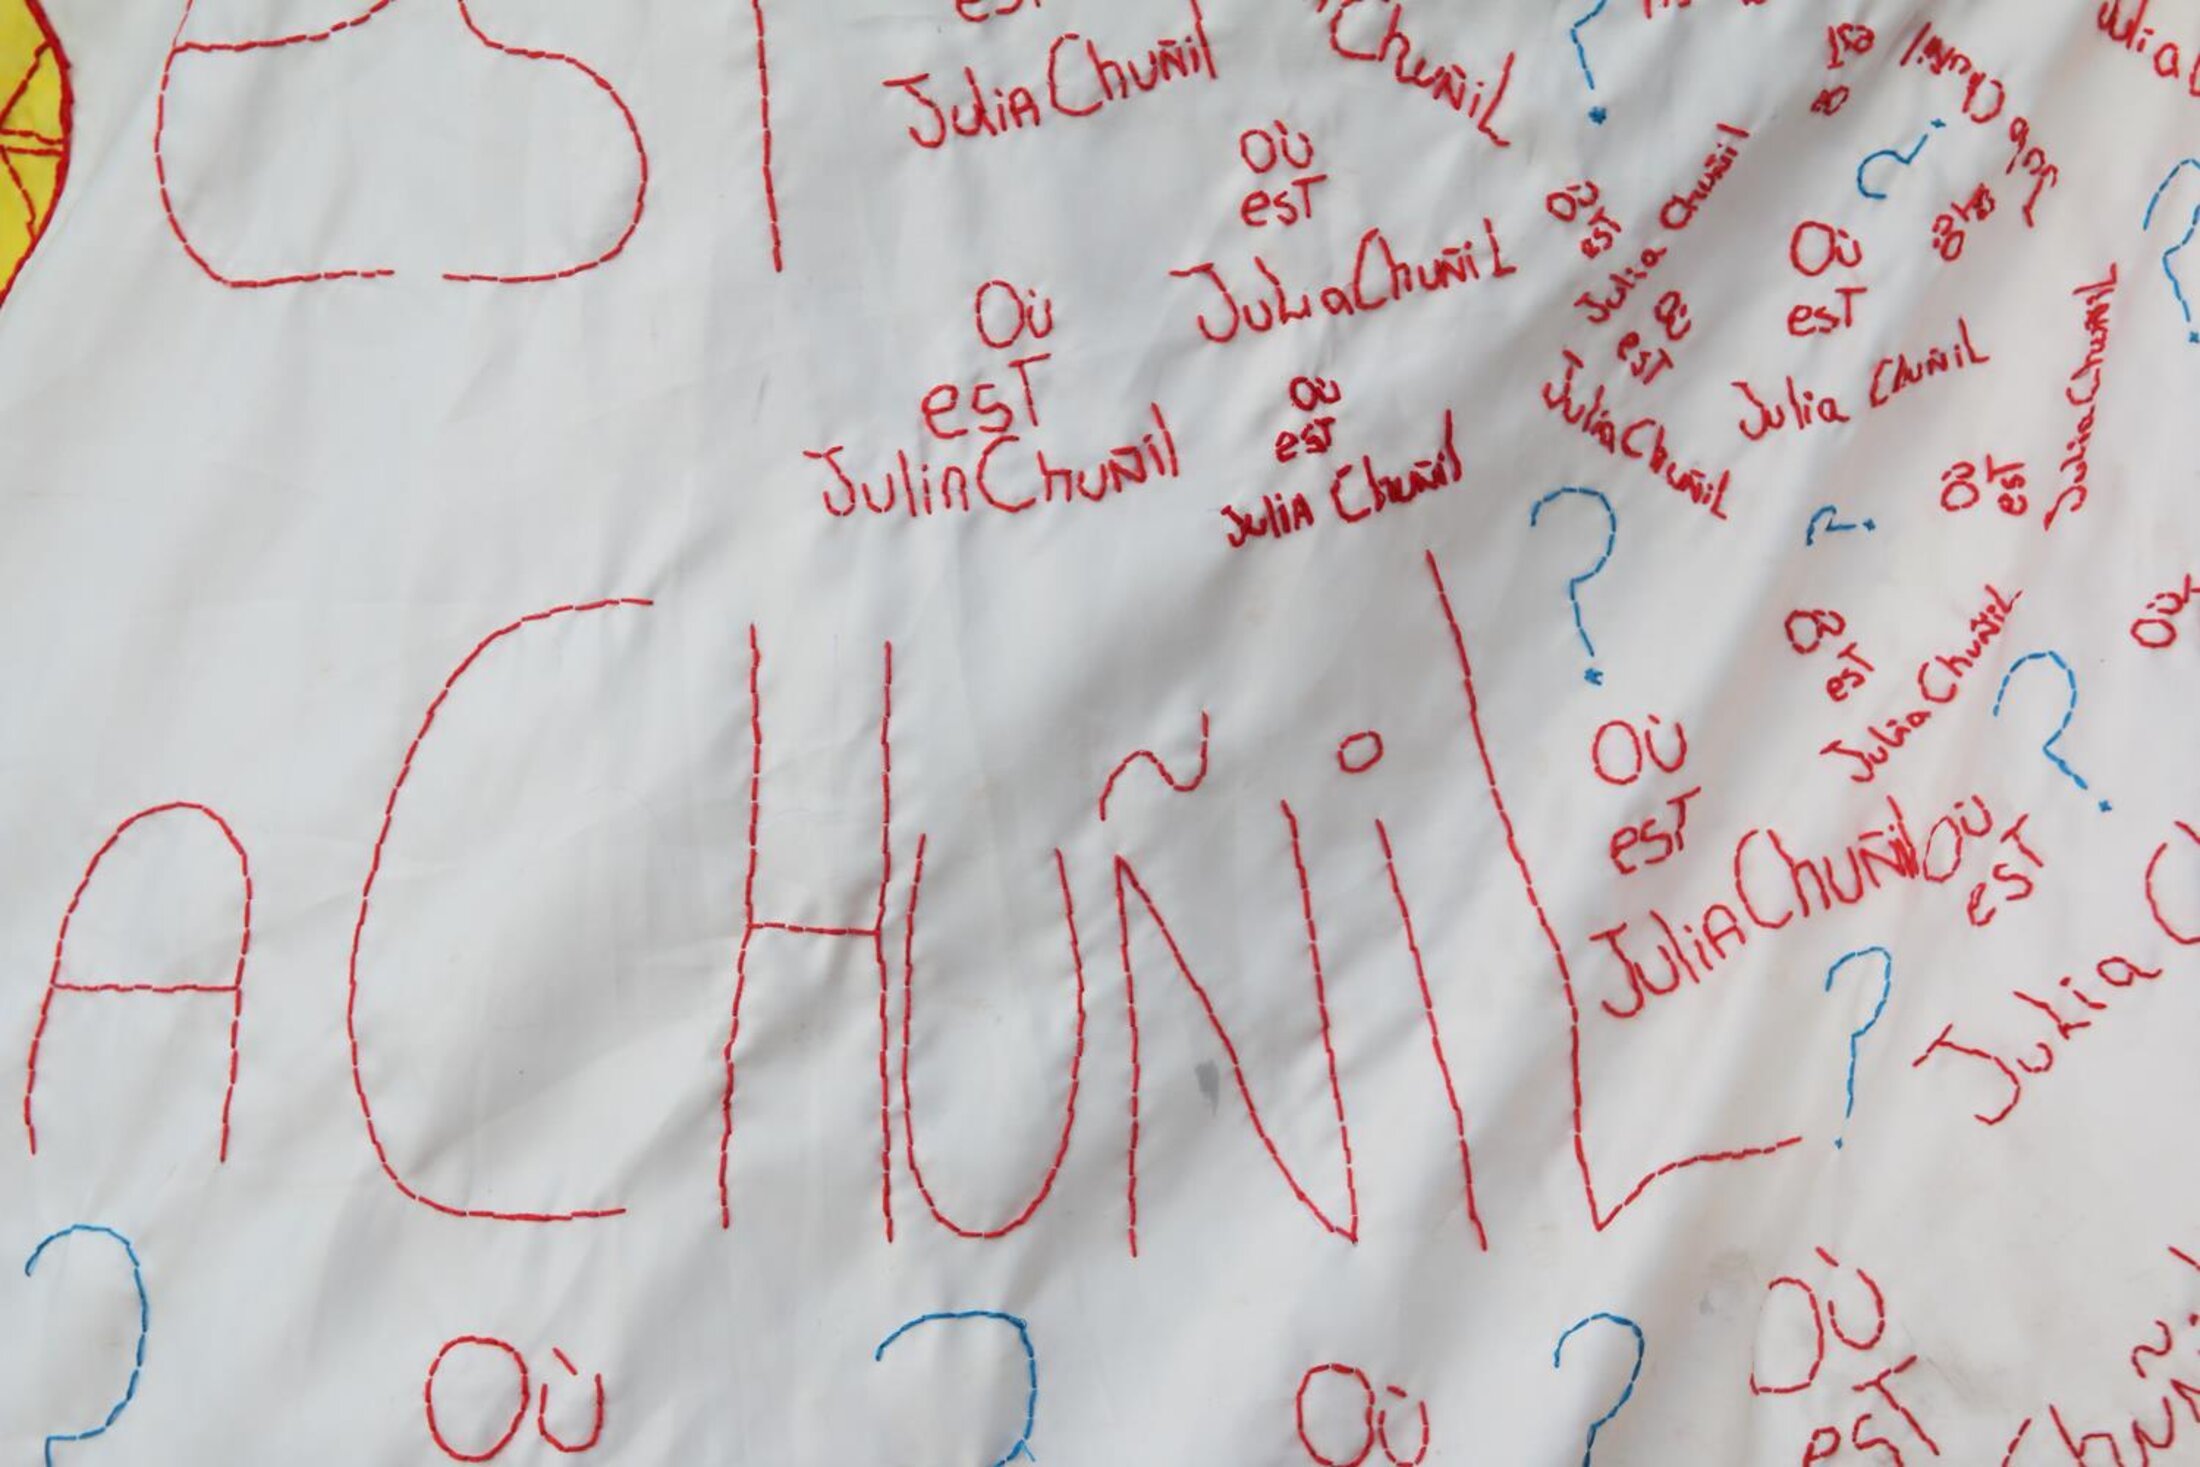 est
Julia Chuñil
Chuñil
?
Julia
est
Où
Julia Chuñil
Où
est
Julia Chuñil
Où
est
Julia Chuñil
?
Où
est
Julia Chuñil
Où
est
Julia Chuñil
Où
est
Julia Chuñil
Où
est
Julia Chuñil
Où est
Julia Chuñil
?
Où
est
Julia Chuñil
?
?
Où
est
Julia Chuñil
?
Où
A CHUÑiL
Où
est
Julia Chuñil
Où
est
Julia C
?
?
Où
?
Où
?
Où
est
Chuñi